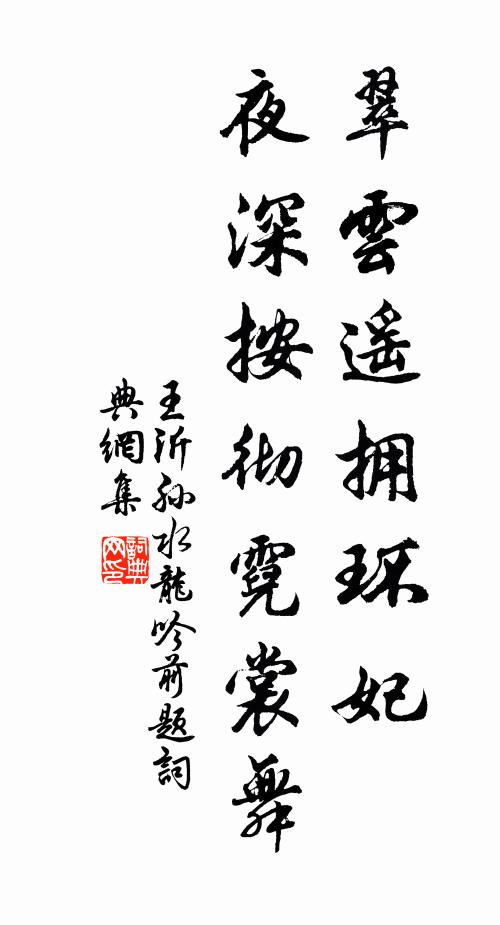 翠雲遥拥环妃
夜深按彻霓裳舞
王沂孙水龍吟前題詞
典網集
詞典
网印